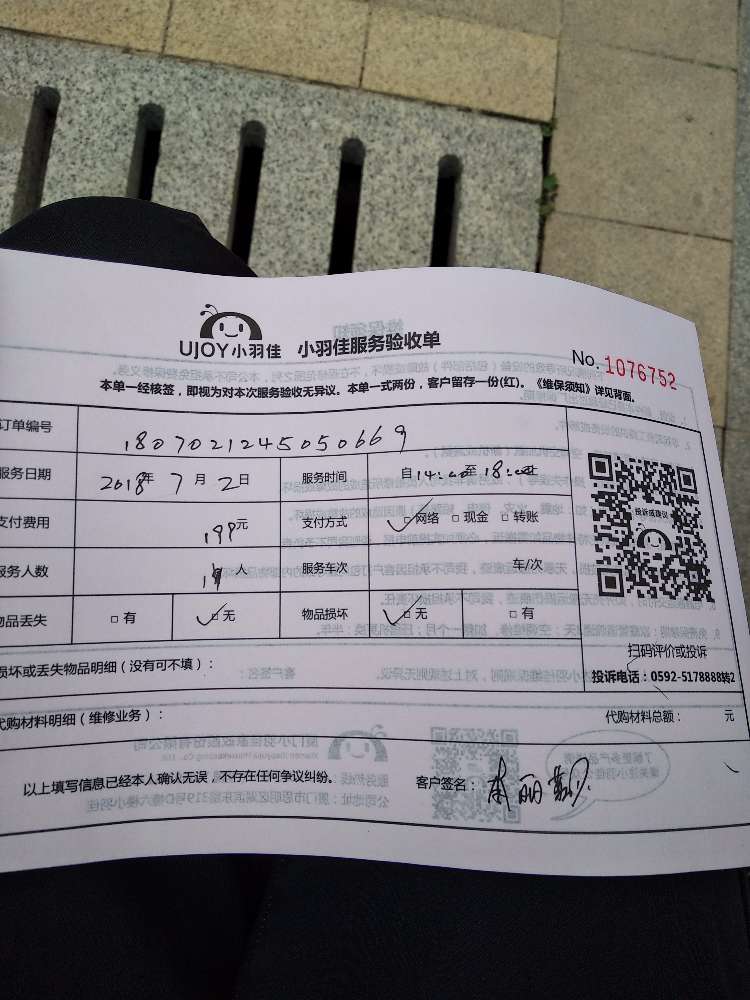 UJOY小羽佳 小羽佳服务验收单
No. 1076752
本单一经核签，即视为对本次服务验收无异议。本单一式两份，客户留存一份(红)。《维保须知》详见背面。
订单编号 1807021245050669
服务日期 2018年 7月 2日 服务时间 自14:00至18:00止
支付费用 199元 支付方式 ☑网络 □现金 □转账
服务人数 人 服务车次 车/次
物品丢失 □有 ☑无 物品损坏 ☑无 □有
投诉或建议
扫码评价或投诉
投诉电话：0592-5178888转2
损坏或丢失物品明细（没有可不填）：
代购材料明细（维修业务）： 代购材料总额： 元
以上填写信息已经本人确认无误，不存在任何争议纠纷。 客户签名：